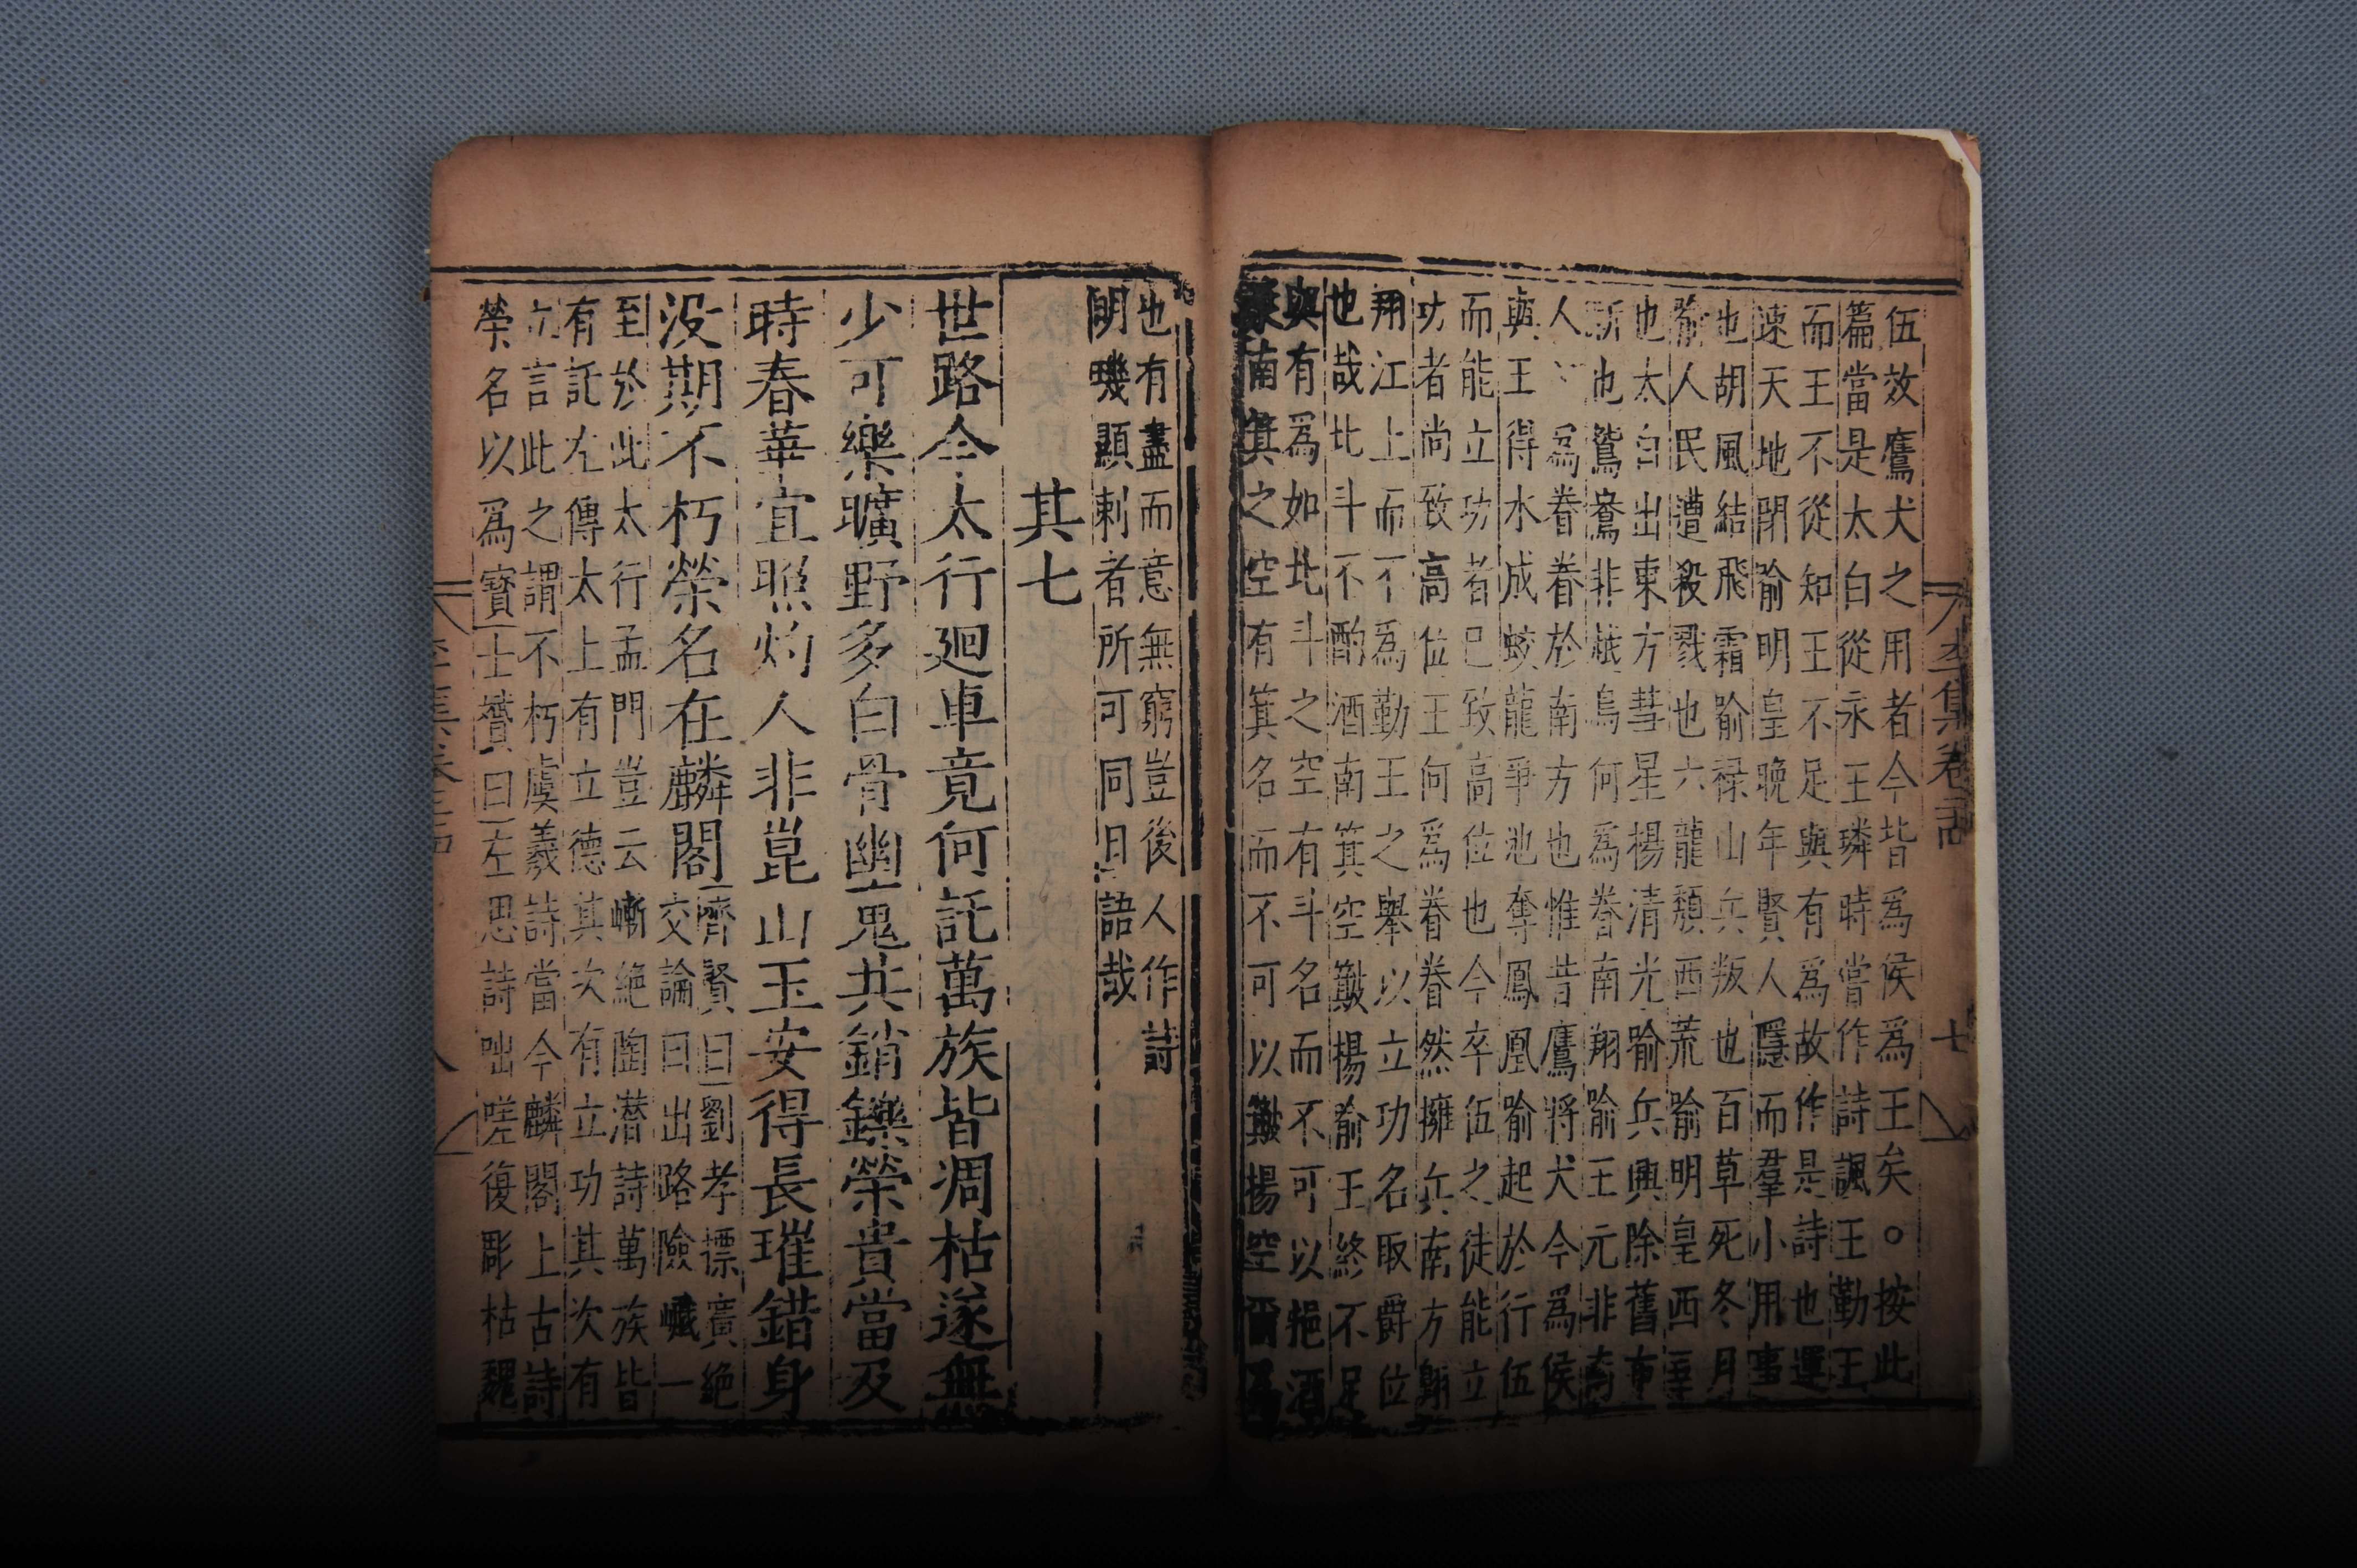 伍效鷹犬之用者今皆爲侯爲王矣○按此
篇當是太白從永王璘時嘗作詩諷王勤王
而王不從知王不足與有爲故作是詩也運
速天地閉喻明皇晚年賢人隱而羣小用事
也胡風結飛霜喻祿山兵叛也百草死冬月
喻人民遭殺戮也六龍頹西荒喻明皇西幸
也太白出東方彗星楊清光喻兵興除舊布
新也鴛鴦非越鳥何爲眷南翔喻王元非南
人爲眷眷於南方也惟昔鷹將犬今爲侯
與王得水成蛟龍爭池奪鳳凰喻起於行伍
而能立功者已致高位也今卒伍之徒能立
功者尚致高位王何爲眷眷然擁兵南方
翔江上而不爲勤王之舉以立功名取爵位
也哉北斗不酌酒南箕空簸楊喻王終不足
與有爲如北斗之空有斗名而不可以挹酒
南箕之空有箕名而不可以簸揚空爾爲
李集卷 七
也有盡而意無窮豈後人作詩
明譏顯刺者所可同日語哉
其七
世路今太行廻車竟何託萬族皆凋枯遂無
少可樂曠野多白骨幽鬼共銷鑠榮貴當及
時春華宜照灼人非崑山玉安得長璀錯身
没期不朽榮名在麟閣
齊賢曰劉孝標廣絶
交論曰出路險巇一
至於此太行孟門豈云嶄絶陶潜詩萬族皆
有託左傳太上有立德其次有立功其次有
立言此之謂不朽虞羲詩當今麟閣上古詩
榮名以爲寶士贇曰左思詩咄嗟復彫枯魏